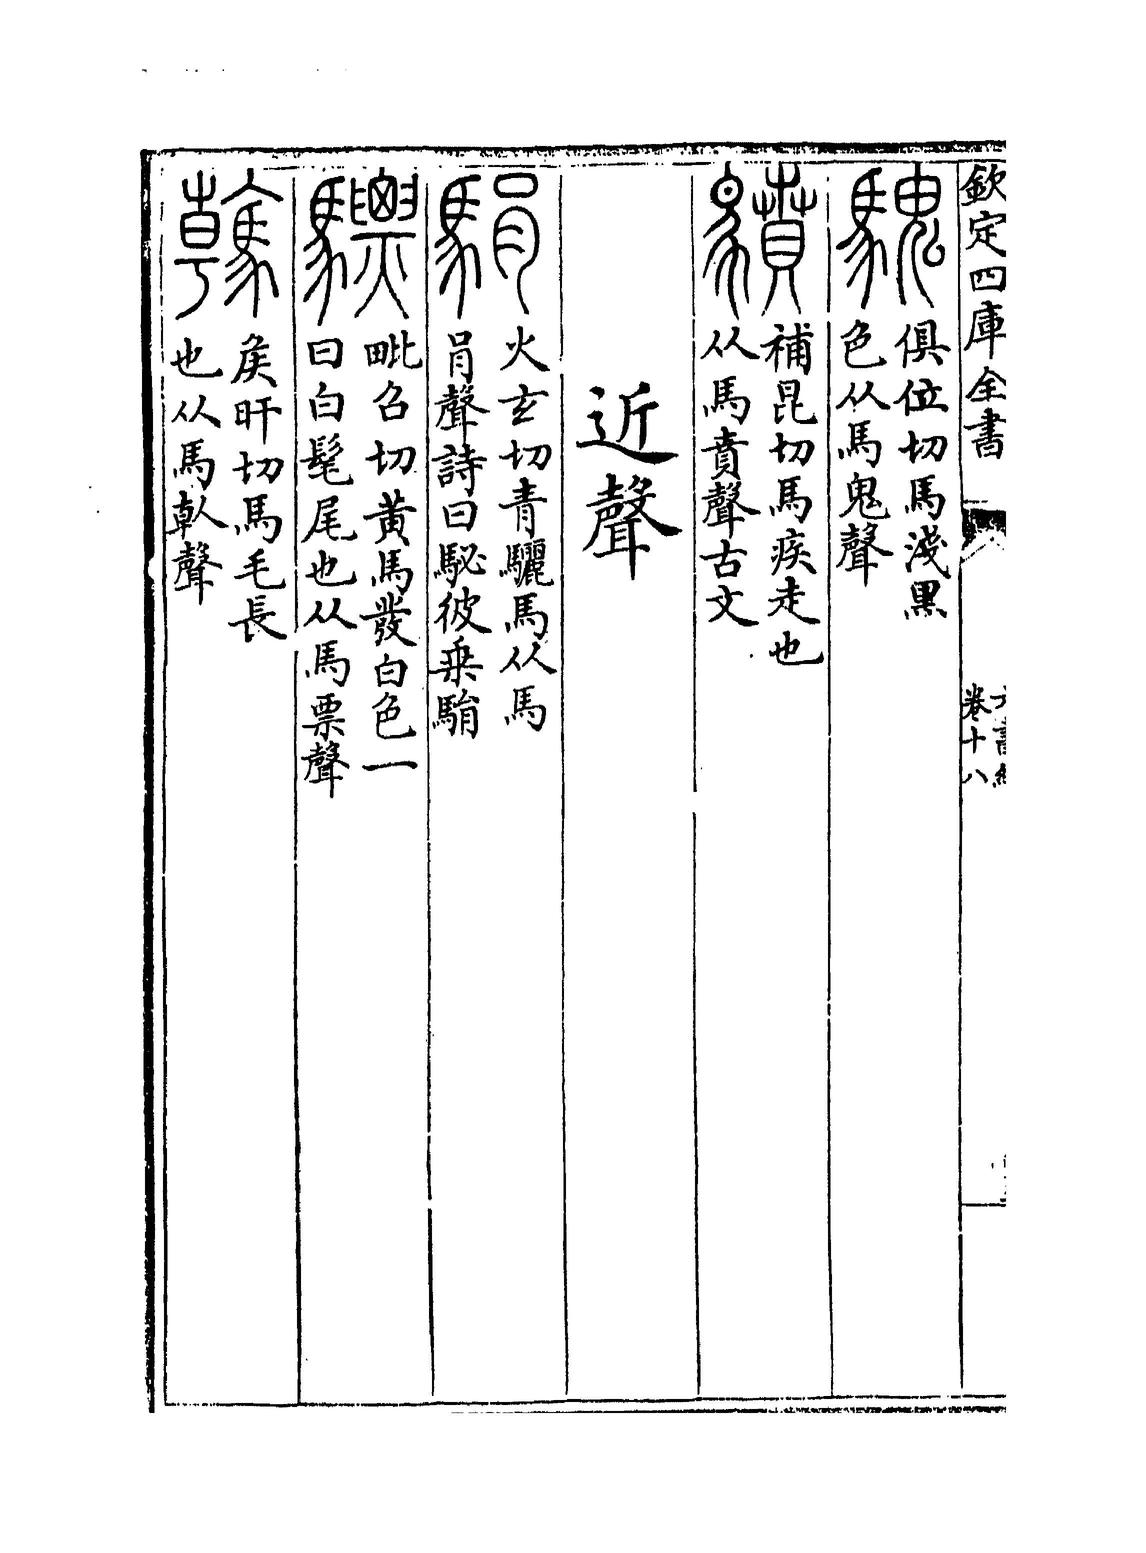 欽定四庫全書
卷十八
騩
俱位切馬淺黑
色从馬鬼聲
補昆切馬疾走也
从馬賁聲古文
近聲
駽
火玄切青驪馬从馬
肙聲詩曰駜彼乗駽
驃
毗召切黄馬發白色一
曰白髦尾也从馬票聲
䮧
矦旰切馬毛長
也从馬倝聲